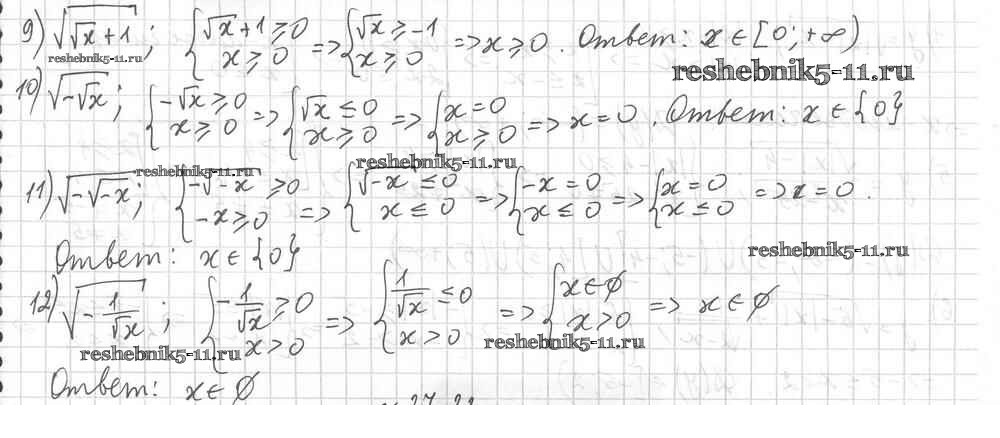 9) √(√x + 1) ; { √x + 1 ⩾ 0 ; x ⩾ 0 => { √x ⩾ -1 ; x ⩾ 0 => x ⩾ 0 . Ответ: x ∈ [0; +∞)
reshebnik5-11.ru
reshebnik5-11.ru
10) √(-√x) ; { -√x ⩾ 0 ; x ⩾ 0 => { √x ⩽ 0 ; x ⩾ 0 => { x = 0 ; x ⩾ 0 => x = 0 . Ответ: x ∈ {0}
reshebnik5-11.ru
reshebnik5-11.ru
11) √(-√-x) ; { -√-x ⩾ 0 ; -x ⩾ 0 => { √-x ⩽ 0 ; x ⩽ 0 => { -x = 0 ; x ⩽ 0 => { x = 0 ; x ⩽ 0 => x = 0 .
Ответ: x ∈ {0}
reshebnik5-11.ru
12) √(-1/√x) ; { -1/√x ⩾ 0 ; x > 0 => { 1/√x ⩽ 0 ; x > 0 => { x ∈ ∅ ; x > 0 => x ∈ ∅
reshebnik5-11.ru
reshebnik5-11.ru
Ответ: x ∈ ∅